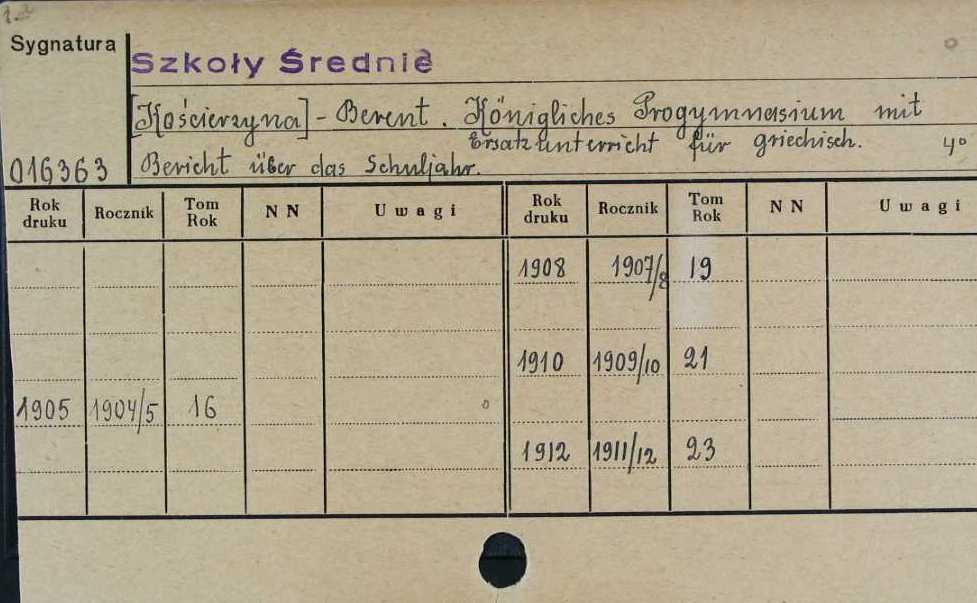 Sygnatura
Szkoły Średnie
[Kościerzyna] - Berent. Königliches Progymnasium mit
Ersatzunterricht für griechisch. 4°
016363 Bericht über das Schuljahr.
Rok druku Rocznik Tom Rok NN Uwagi Rok druku Rocznik Tom Rok NN Uwagi
1908 1907/8 19
1910 1909/10 21
1905 1904/5 16
1912 1911/12 23